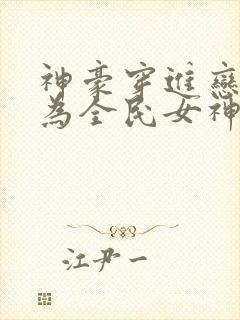 神豪穿進戀
為全民女神
江尹一